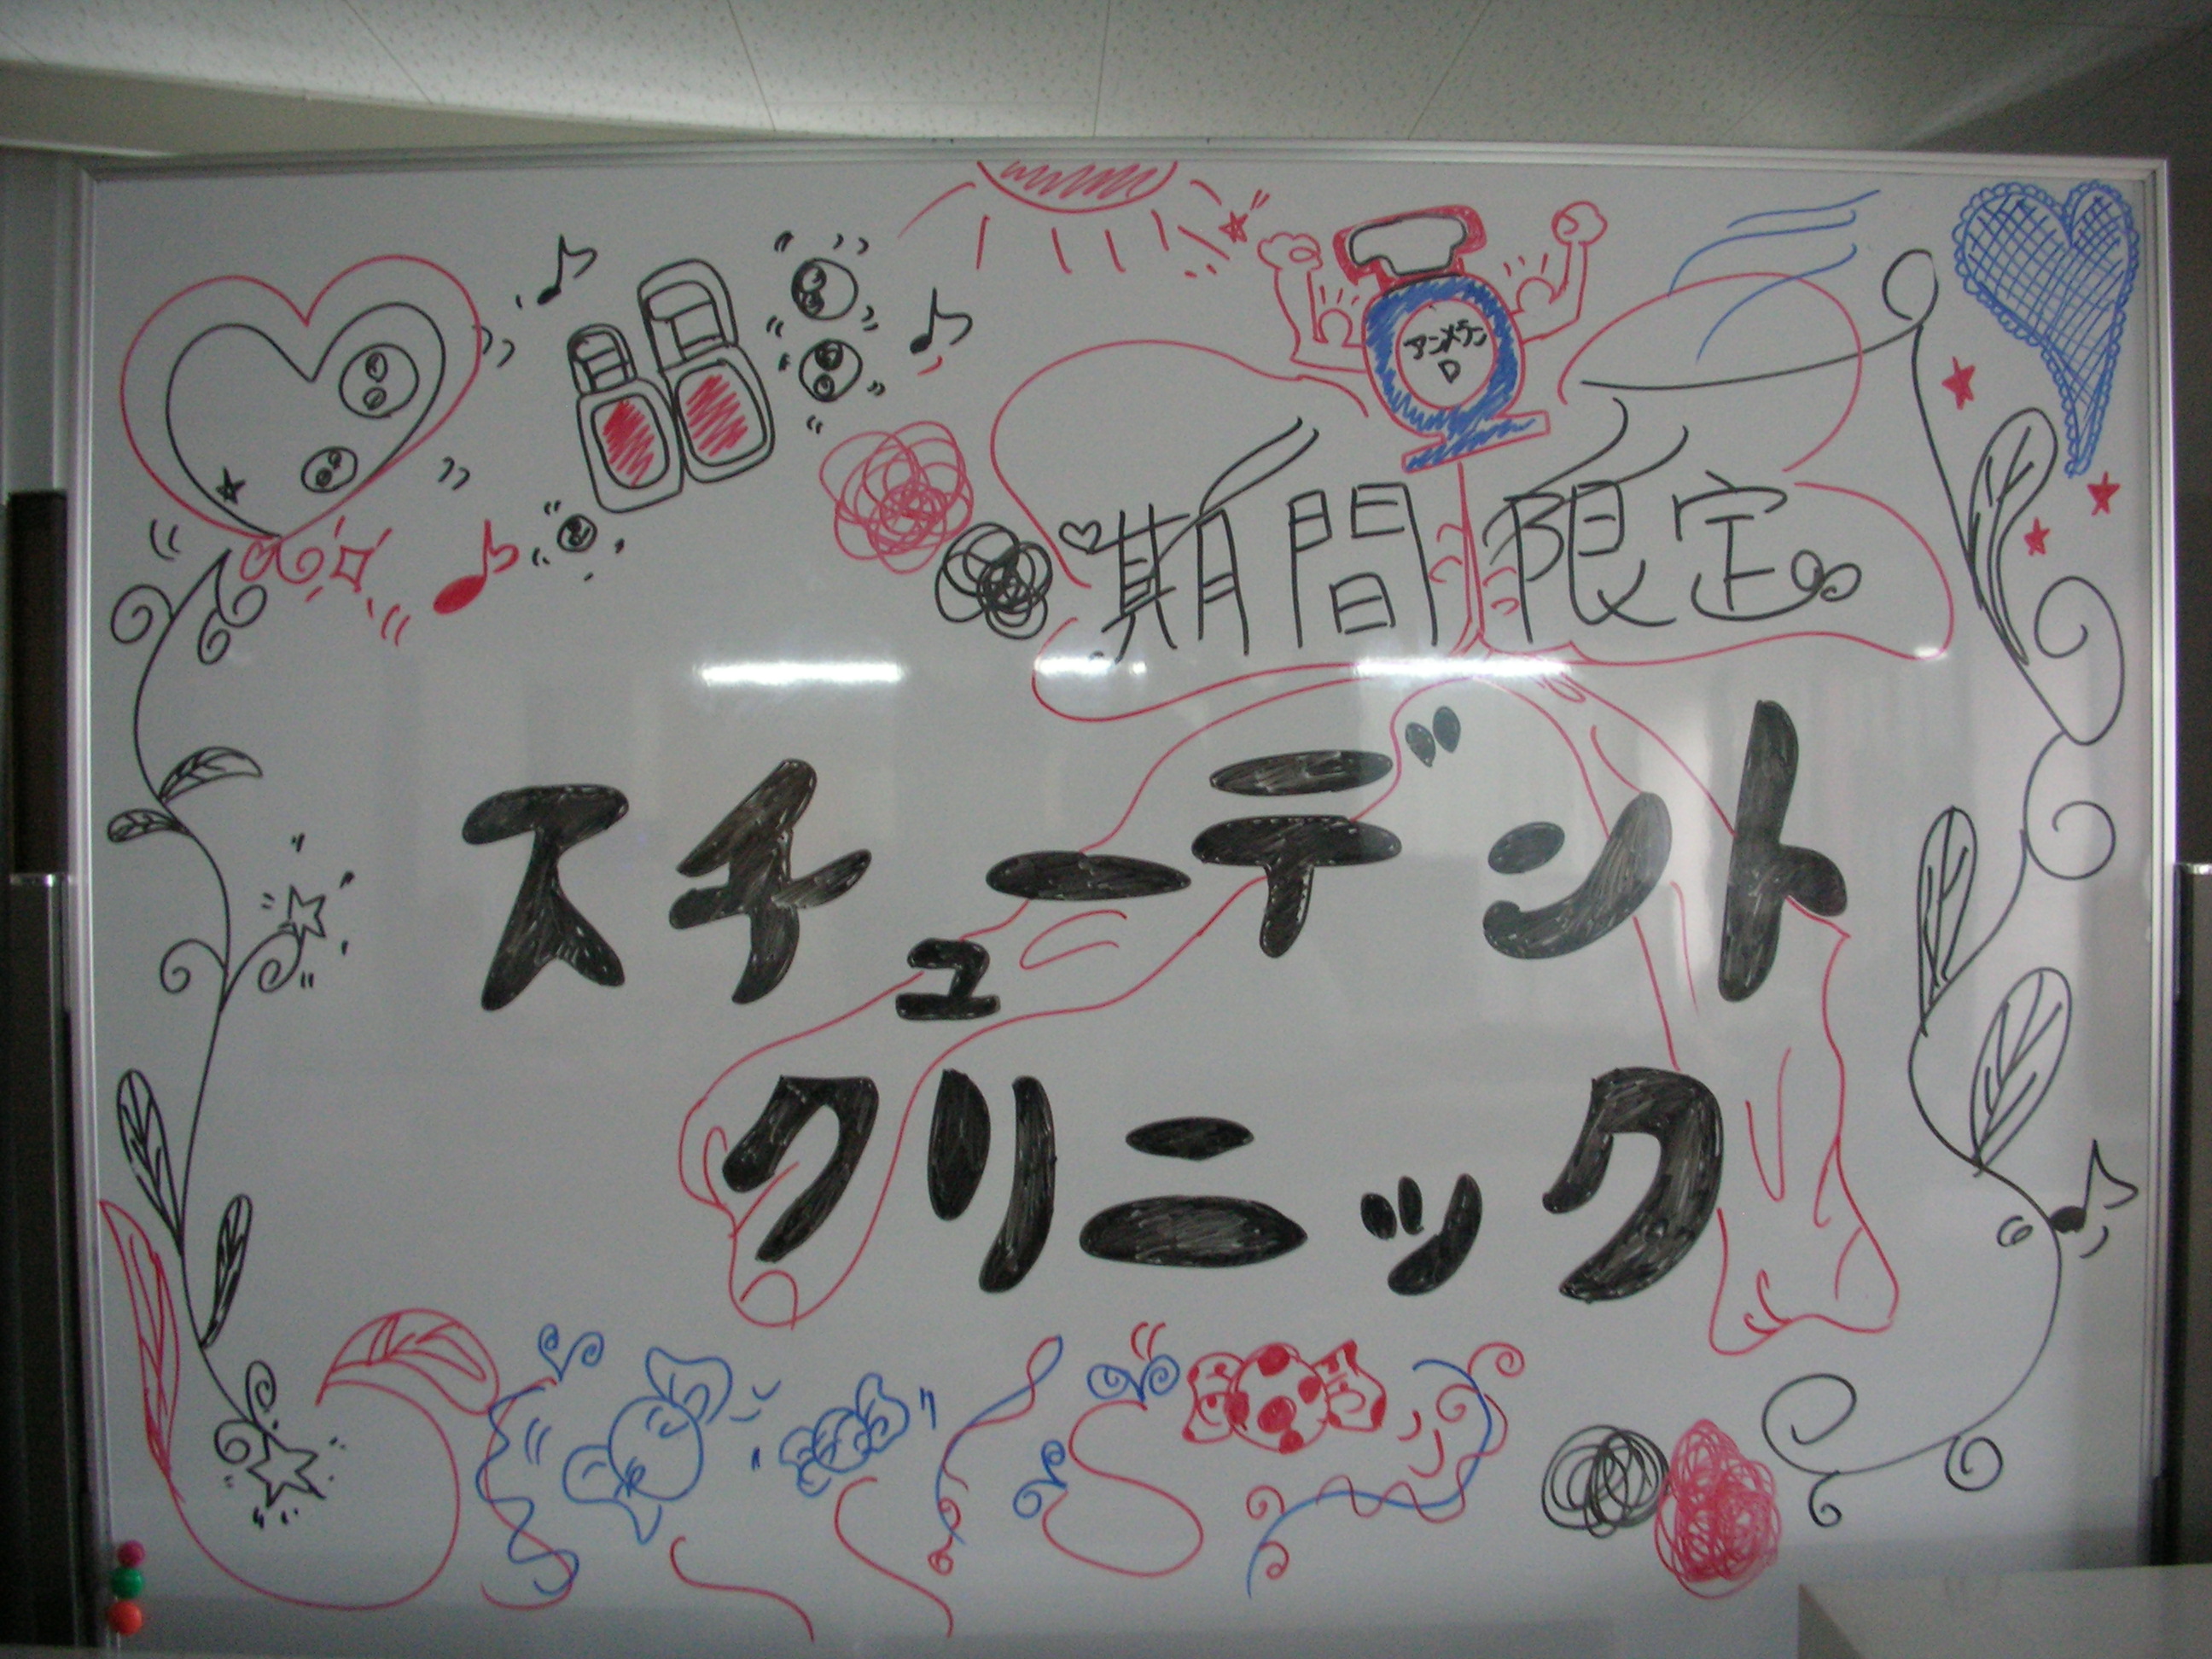 アンメラン
D
期間限定
スチューデント
クリニック